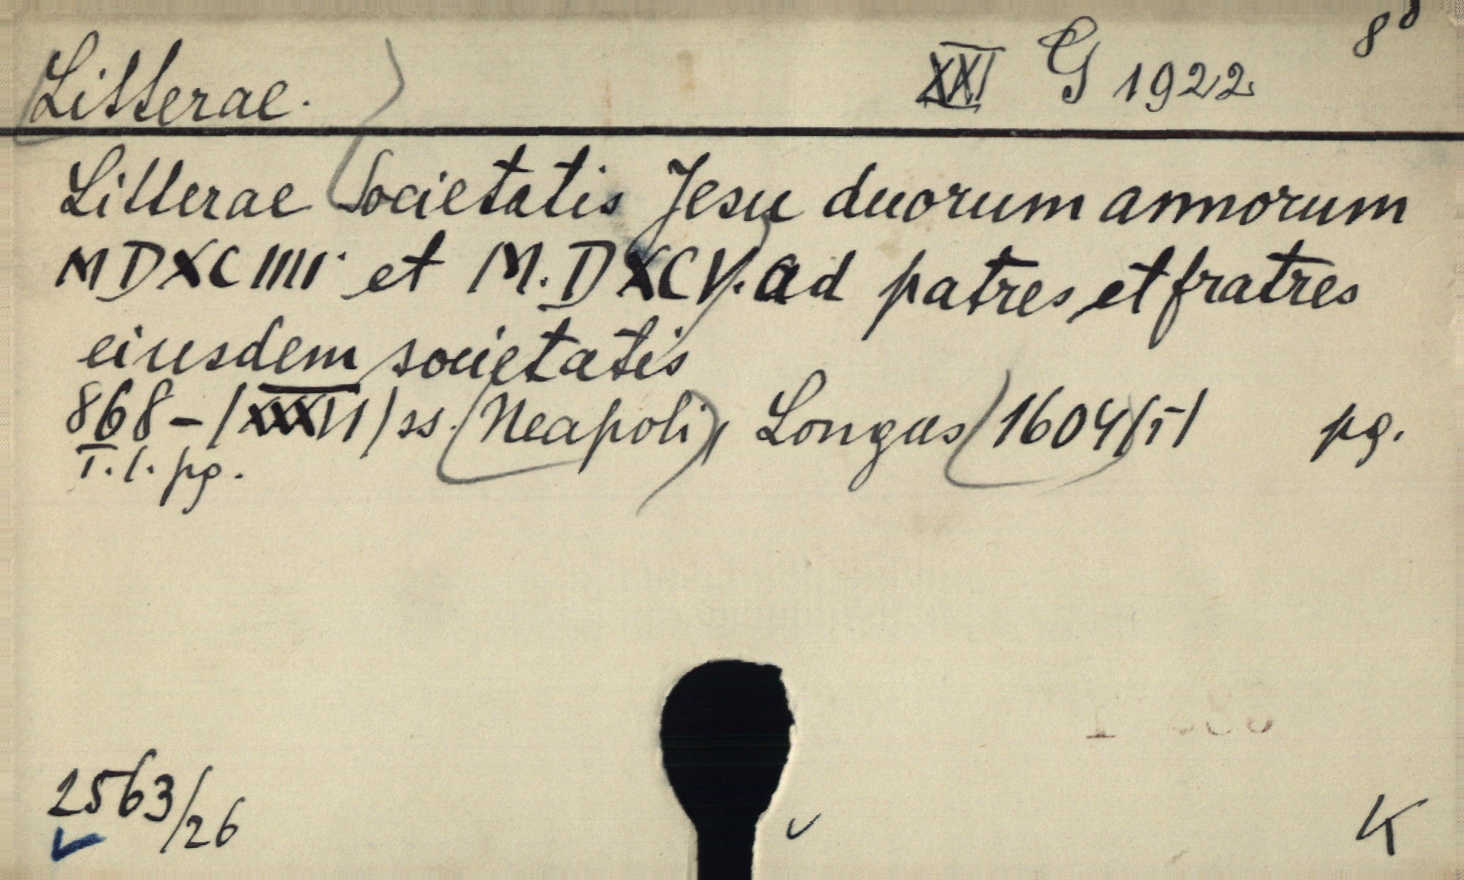 Litterae. XXI G 1922 8°
Litterae Societatis Jesu duorum annorum
MDXCIIII. et M.DXCV. ad patres et fratres
eiusdem societatis
868-/XXXVI/ss. Neapoli, Longus 1604/5/ pg.
T.l. pg.
2563/26
K